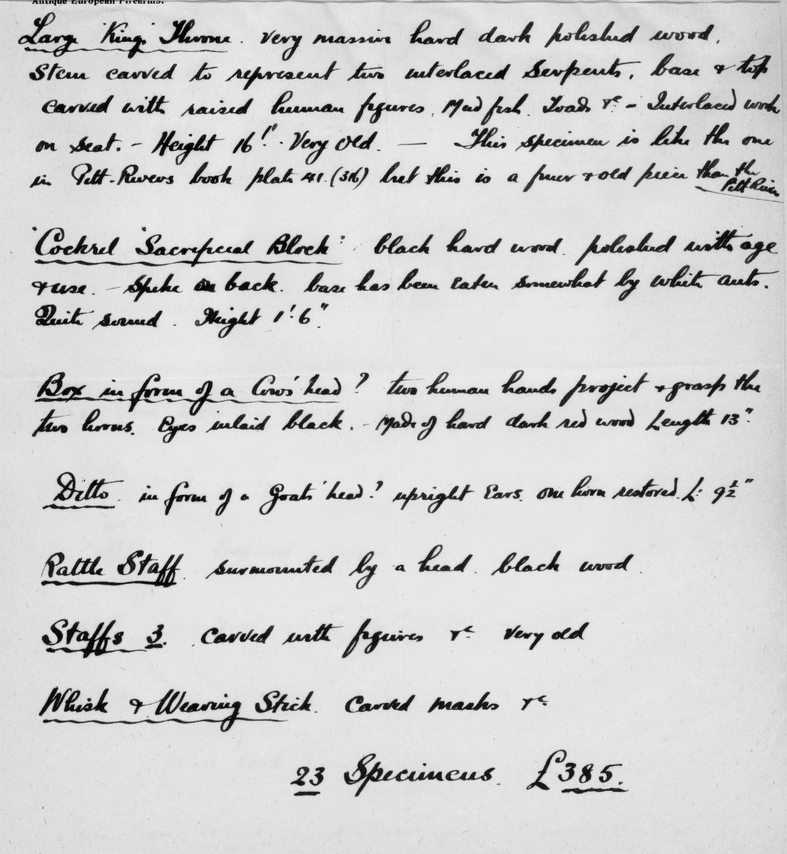 Antique European Firearms.
Large 'King' Throne. Very massive hard dark polished wood.
Stem carved to represent two interlaced Serpents, base & top
carved with raised human figures, Mud fish. Toads &c - Interlaced work
on seat. - Height 16". Very old. — This specimen is like the one
in Pitt-Rivers book plate 41. (316) but this is a finer & old piece than the
Pitt River
'Cockrel Sacrificial Block' black hard wood. polished with age
& use. - Spike in back. base has been eaten somewhat by white ants.
Quite sound. Height 1'. 6".
Box in form of a Cows' head? two human hands project & grasp the
two horns. Eyes inlaid black. - Made of hard dark red wood Length 13".
Ditto. in form of a Goats' head? upright Ears. one horn restored. L: 9½"
Rattle Staff. surmounted by a head. black wood.
Staffs 3. Carved with figures &c Very old
Whisk & Weaving Stick. Carved masks &c
23 Specimens. £385.